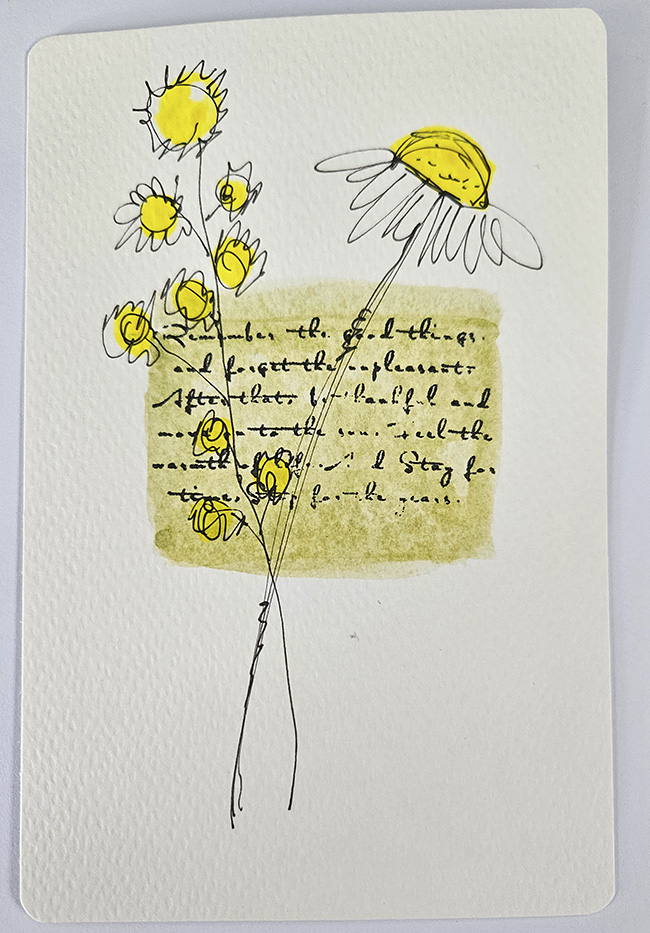 Remember the good things.
and forget the unpleasant.
After that, be thankful and
to the sun. Feel the
warmth of Stay for
time. Stay for the years.